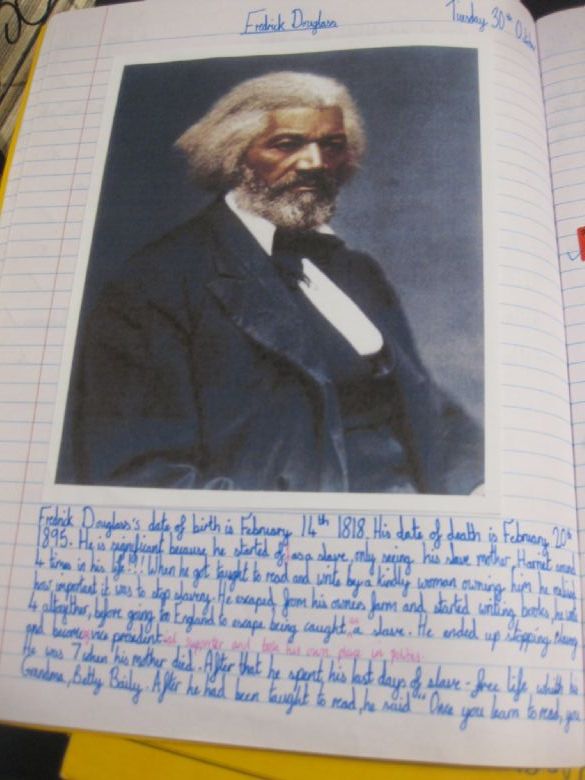 Fredrick Douglass
Tuesday 30th Octo
Fredrick Douglass's date of birth is February 14th 1818. His date of death is February 20th
1895. He is significant because he started of as a slave, only seeing his slave mother, Harriet around
4 times in his life!!! When he got taught to read and write by a kindly woman owning him he realised
how important it was to stop slavery. He escaped from his owners farm and started writing books, he wrote
4 altogether, before going to England to escape being caught as a slave. He ended up stopping slavery
and become vice president and supporter and took his own place in politics.
He was 7 when his mother died. After that he spent, his last days of slave-free life, whith his
Grandma, Betty Baily. After he had been taught to read, he said "Once you learn to read, you